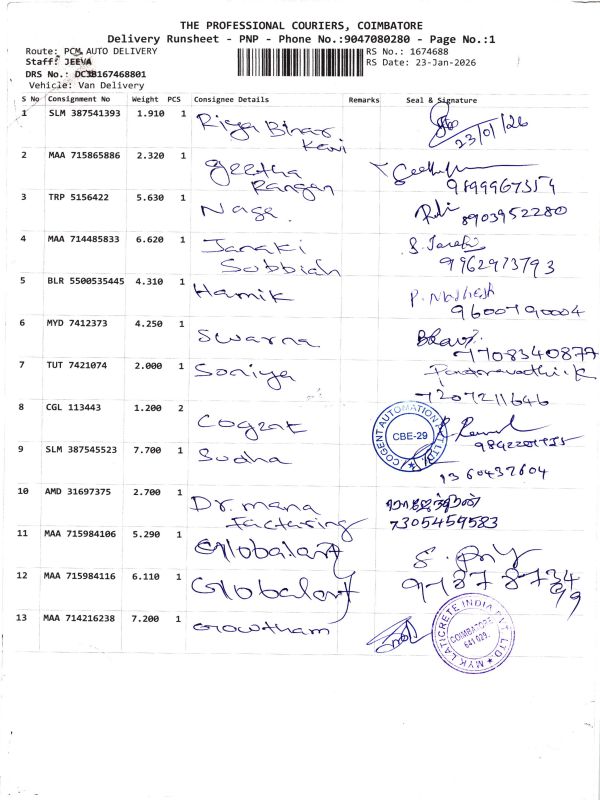 THE PROFESSIONAL COURIERS, COIMBATORE
Delivery Runsheet - PNP - Phone No.:9047080280 - Page No.:1
Route: PCM AUTO DELIVERY
RS No.: 1674688
Staff: JEEVA
RS Date: 23-Jan-2026
DRS No.: DCBB167468801
Vehicle: Van Delivery
S No Consignment No Weight PCS Consignee Details Remarks Seal & Signature
1 SLM 387541393 1.910 1 Riya Bhas
Kavi
23/01/26
2 MAA 715865886 2.320 1 geetha
Rangan
9899967359
3 TRP 5156422 5.630 1 Naga.
8903952280
4 MAA 714485833 6.620 1 Janaki
Subbiah
S. Janaki
9962973793
5 BLR 5500535445 4.310 1 Hamik
P. Mathesh
9600790004
6 MYD 7412373 4.250 1 Swarna
7708340877
7 TUT 7421074 2.000 1 Soniya
7207211646
8 CGL 113443 1.200 2 Cogent
COGENT AUTOMATION PVT LTD.
CBE-29
9 SLM 387545523 7.700 1 Sudha
9360437604
10 AMD 31697375 2.700 1 Dr. mana
factaring
7305459583
11 MAA 715984106 5.290 1 Globalart
12 MAA 715984116 6.110 1 Globalart
13 MAA 714216238 7.200 1 Gowtham
MYK LATICRETE INDIA PVT. LTD
COIMBATORE
641 029.